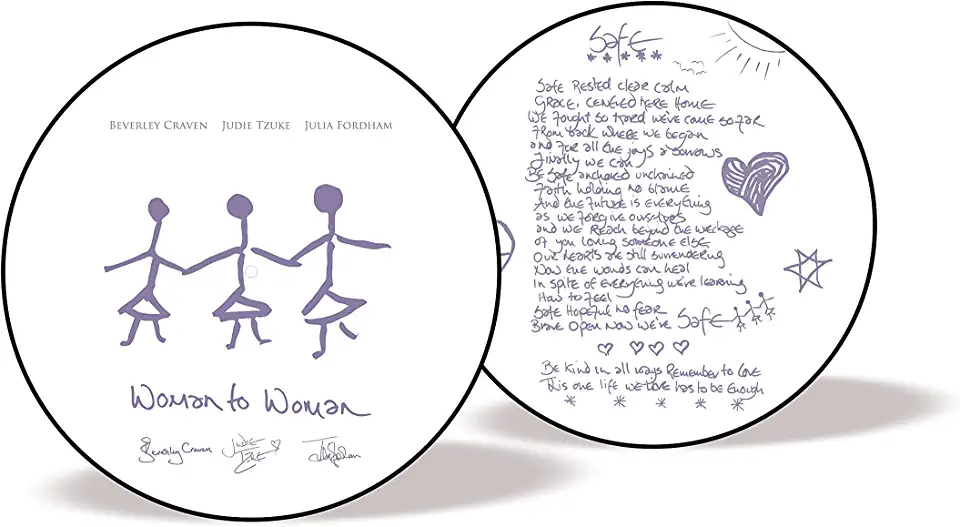 BEVERLEY CRAVEN JUDIE TZUKE JULIA FORDHAM
Woman to Woman
Beverley Craven Judie Tzuke
Safe
Safe Rested clear calm
Grace, centred here Home
We fought so hard we've come so far
From back where we began
and for all the joys & sorrows
Finally we can
Be Safe anchored unchained
Faith holding no blame
And the future is everything
as we forgive ourselves
and we Reach beyond the wreckage
of you loving someone else
Our hearts are still surrendering
Now the wounds can heal
In spite of everything we're learning
How to feel
Safe Hopeful no fear
Brave Open Now we're Safe
Be Kind in all ways Remember to Love
This one life we love has to be Enough